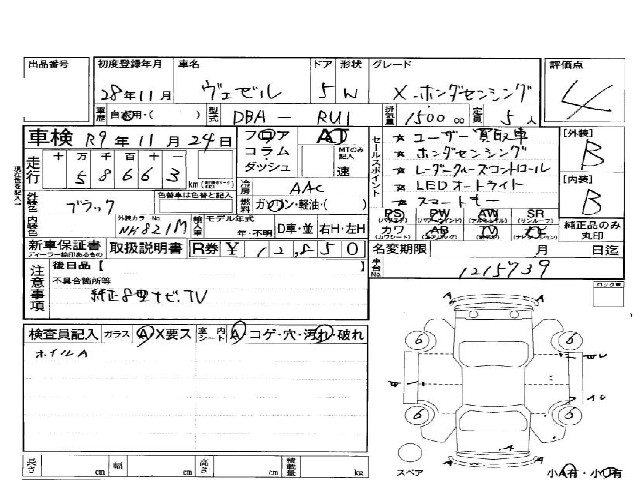 出品番号 初度登録年月 車名 ドア 形状 グレード 評価点
28年11月 ヴェゼル 5 W X-ホンダセンシング 4
車歴 自家用・( ) 型式 DBA - RU1 排気量 1500 cc 定員 5 人
車検 R9年11月24日 フロア AT セールスポイント ☆ ユーザー買取車 [外装] B
走行 十 万 千 百 十 一 コラム MTのみ記入 ☆ ホンダセンシング
5 8 6 6 3 km ダッシュ 速 ☆ レーダークルーズコントロール
外装色 ブラック 色替車は色替と記入 冷房 AAC ☆ LEDオートライト [内装] B
燃料 ガソリン・軽油・( ) ☆ スマートキー
内装色 外装カラーNo NH821M 輸入車 モデル年式 年・不明 D車・並 右H・左H
PS PW AW SR 純正品のみ丸印
カワ AB TV
新車保証書 取扱説明書 R券 ¥ 12,850 名変期限 月 日迄
注意事項 後日品【 】 車台No. 1215739
不具合箇所等
純正8型ナビ、TV ロック車
検査員記入 ガラス A X要ス 室内 シート A コゲ・穴・汚れ・破れ
ホイルA
6 6
6 6
長さ cm 幅 cm 高さ cm 積載量 kg
スペア 小A有・小U有